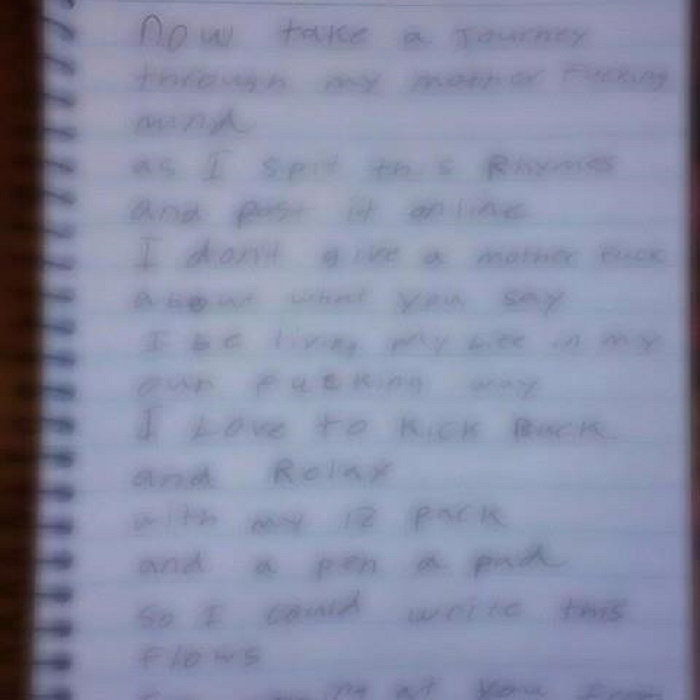 Now take a Journey
through my mother Fucking
mind
as I spit this Rhymes
and post it online
I don't give a mother Fuck
about what you say
I be living my Life in my
own Fucking way
I Love to Kick Back
and Relax
with my 12 pack
and a pen a pad
So I could write this
Flows
at you